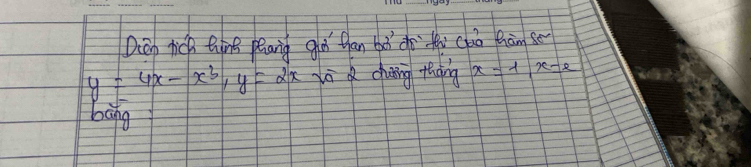 Thứ ngày tháng
Diện tích hình phẳng giới hạn bởi đồ thị của hàm số
y = 4x - x³, y = 2x và 2 đường thẳng x = 1, x = e
bằng :